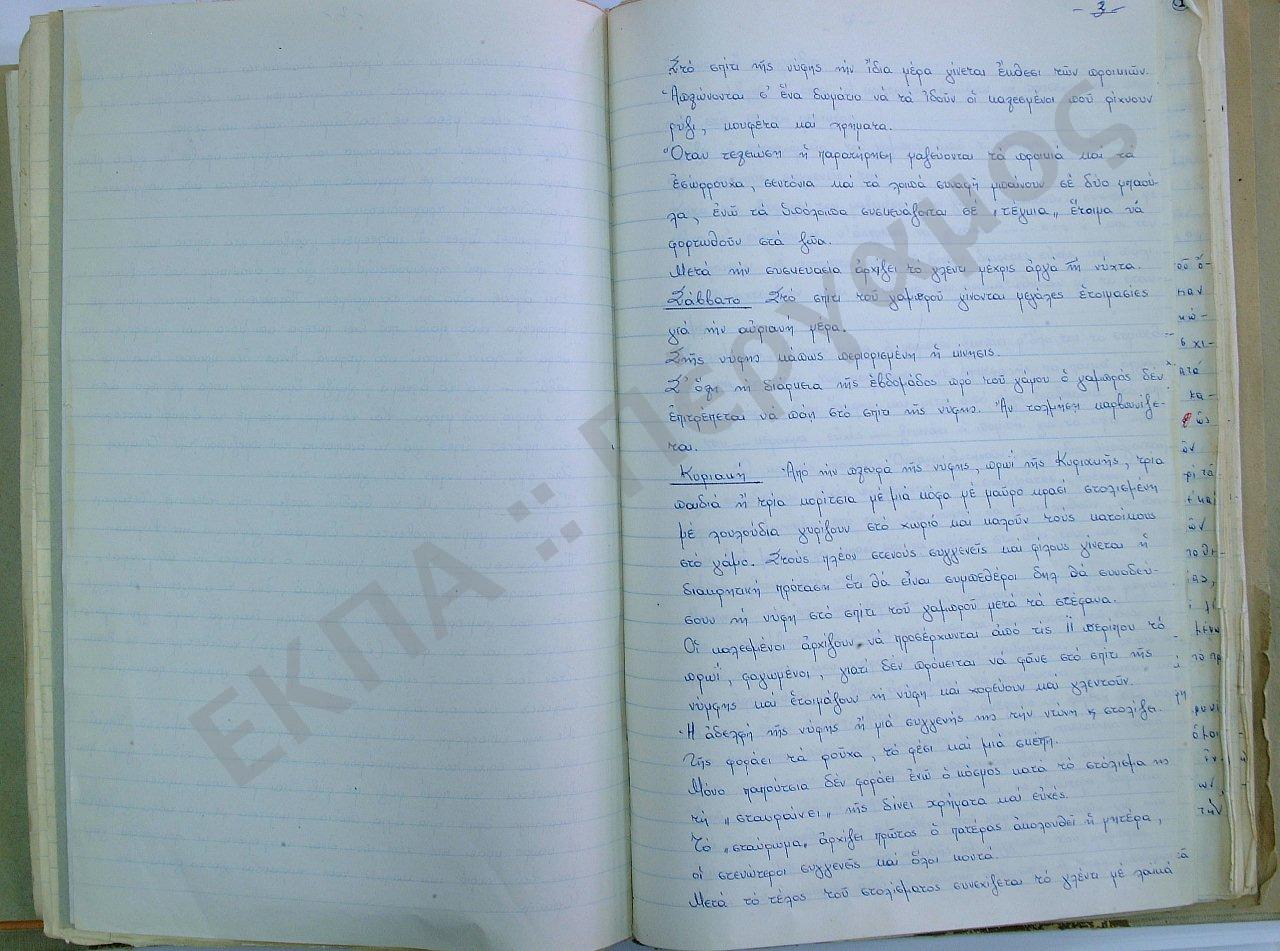 - 3 -
Στό σπίτι τῆς νύφης τήν ἴδια μέρα γίνεται ἔκθεσι τῶν προικιῶν.
Ἁπλώνονται σ' ἕνα δωμάτιο νά τά ἰδοῦν οἱ καλεσμένοι πού ρίχνουν
ρύζι, κουφέτα καί χρήματα.
Ὅταν τελειώση ἡ παρατήρηση μαζεύονται τά προικιά καί τά
ἐσώρρουχα, σεντόνια καί τά λοιπά συναφῆ μπαίνουν σέ δύο μπαού-
λα, ἐνῶ τά ὑπόλοιπα συσκευάζονται σέ "τέγκια" ἕτοιμα νά
φορτωθοῦν στά ζῶα.
Μετά τήν συσκευασία ἀρχίζει τό γλέντι μέχρις ἀργά τή νύχτα.
Σάββατο Στό σπίτι τοῦ γαμπροῦ γίνονται μεγάλες ἑτοιμασίες
γιά τήν αὐριανή μέρα.
Στῆς νύφης κάπως περιορισμένη ἡ κίνησις.
Σ' ὅλη τή διάρκεια τῆς ἑβδομάδος πρό τοῦ γάμου ὁ γαμπρός δέν
ἐπιτρέπεται νά πάη στό σπίτι τῆς νύφης. Ἄν τολμήσει καρβουνίζε-
ται.
Κυριακή Ἀπό τήν πλευρά τῆς νύφης, πρωΐ τῆς Κυριακῆς, τρία
παιδιά ἤ τρία κορίτσια μέ μιά κόφα μέ μαῦρο κρασί στολισμένη
μέ λουλούδια γυρίζουν στό χωριό καί καλοῦν τούς κατοίκους
στό γάμο. Στούς πλέον στενούς συγγενεῖς καί φίλους γίνεται ἡ
διακριτική πρόταση ὅτι θά εἶναι συμπεθέροι δηλ θά συνοδεύ-
σουν τή νύφη στό σπίτι τοῦ γαμπροῦ μετά τά στέφανα.
Οἱ καλεσμένοι ἀρχίζουν νά προσέρχωνται ἀπό τίς 11 περίπου τό
πρωΐ, φαγωμένοι, γιατί δέν πρόκειται νά φᾶνε στό σπίτι τῆς
νύμφης καί ἑτοιμάζουν τή νύφη καί χορεύουν καί γλεντοῦν.
Ἡ ἀδελφή τῆς νύφης ἤ μιά συγγενής της τήν ντύνη ϗ στολίζει.
Τῆς φοράει τά ροῦχα, τό φέσι καί μιά σκέπη.
Μόνο παπούτσια δέν φοράει ἐνῶ ὁ κόσμος κατά τό στόλισμα της
τή "σταυραίνει" τῆς δίνει χρήματα καί εὐχές.
Τό "σταύρωμα" ἀρχίζει πρῶτος ὁ πατέρας ἀκολουθεῖ ἡ μητέρα,
οἱ στενώτεροι συγγενεῖς καί ὅλοι κοντά.
Μετά τό τέλος τοῦ στολίσματος συνεχίζεται τό γλέντι μέ λαϊκά
ΕΚΠΑ :: Περγαμος